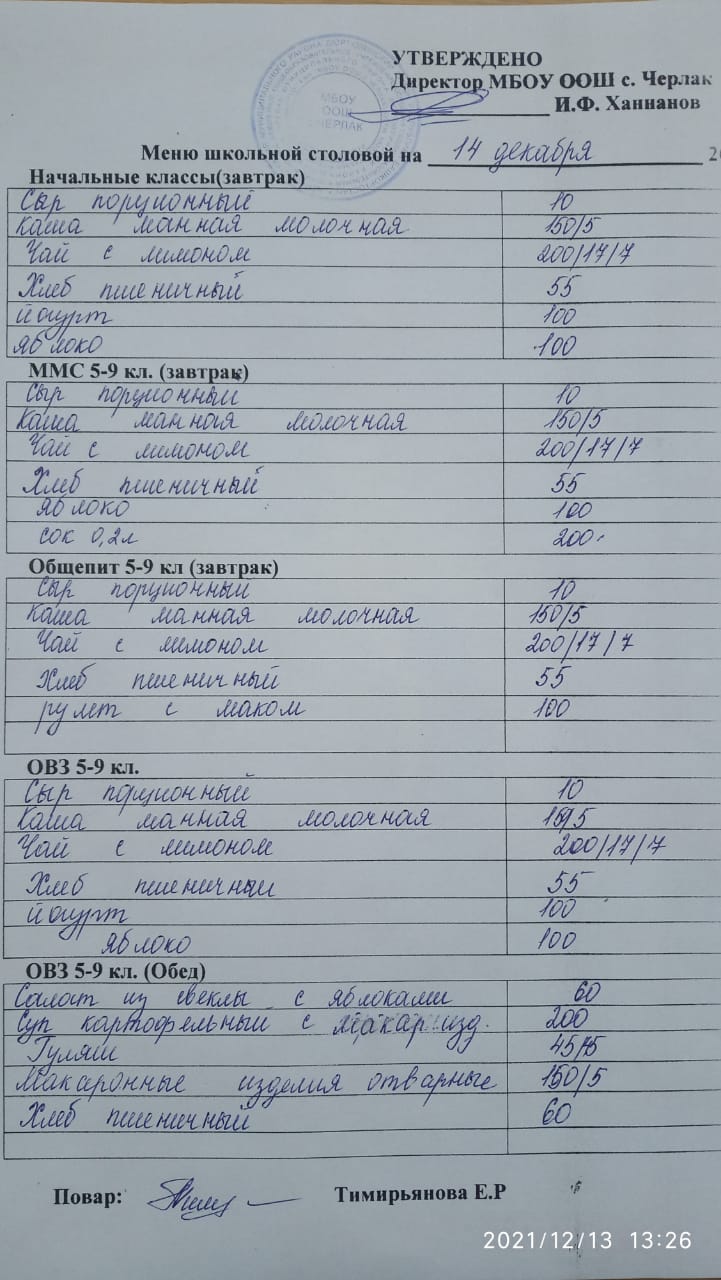 УТВЕРЖДЕНО
Директор МБОУ ООШ с. Черлак
И.Ф. Ханнанов
МБОУ
ООШ
ЧЕРЛАК
Меню школьной столовой на 14 декабря 20
Начальные классы(завтрак)
Сыр порционный 10
Каша манная молочная 150/5
Чай с лимоном 200/17/7
Хлеб пшеничный 55
йогурт 100
яблоко 100
ММС 5-9 кл. (завтрак)
Сыр порционный 10
Каша манная молочная 150/5
Чай с лимоном 200/17/7
Хлеб пшеничный 55
яблоко 100
сок 0,2л 200
Общепит 5-9 кл (завтрак)
Сыр порционный 10
Каша манная молочная 150/5
Чай с лимоном 200/17/7
Хлеб пшеничный 55
рулет с маком 100
ОВЗ 5-9 кл.
Сыр порционный 10
Каша манная молочная
Чай с лимоном 200/17/7
Хлеб пшеничный 55
йогурт 100
яблоко 100
ОВЗ 5-9 кл. (Обед)
Салат из свеклы с яблоками 60
Суп картофельный с макар изд. 200
Гуляш
Макаронные изделия отварные 150/5
Хлеб пшеничный 60
Повар: Тимирьянова Е.Р
2021/12/13 13:26